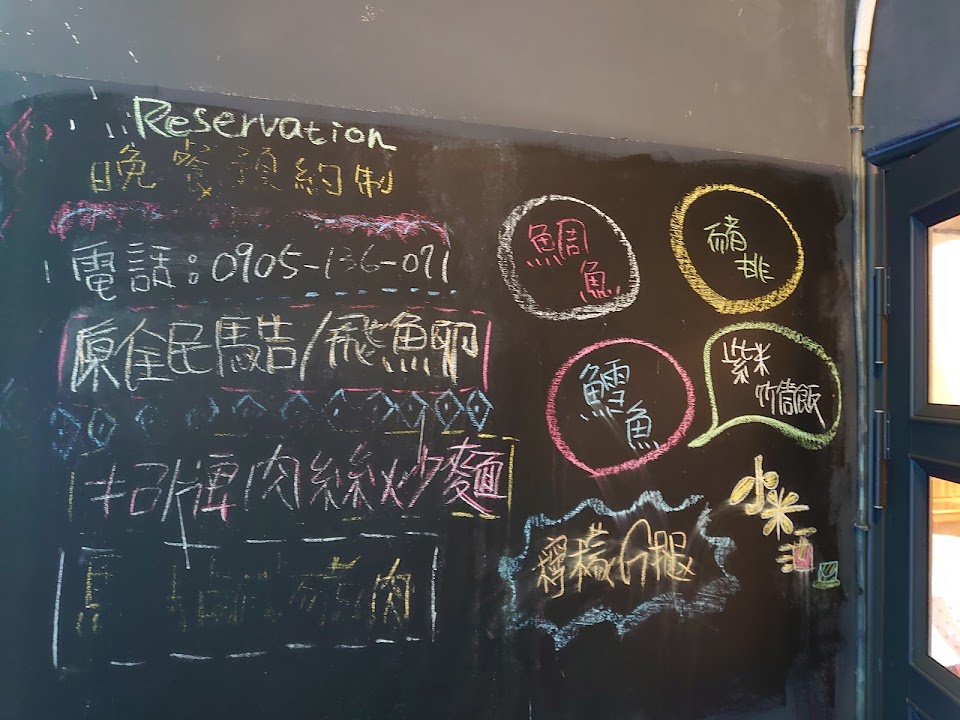 Reservation
晚餐預約制
電話:0905-136-071
原住民馬告/飛魚卵
招牌肉絲炒麵
鹹豬肉
鯛魚
豬排
鱈魚
紫米
竹筒飯
檸檬G腿
小米酒